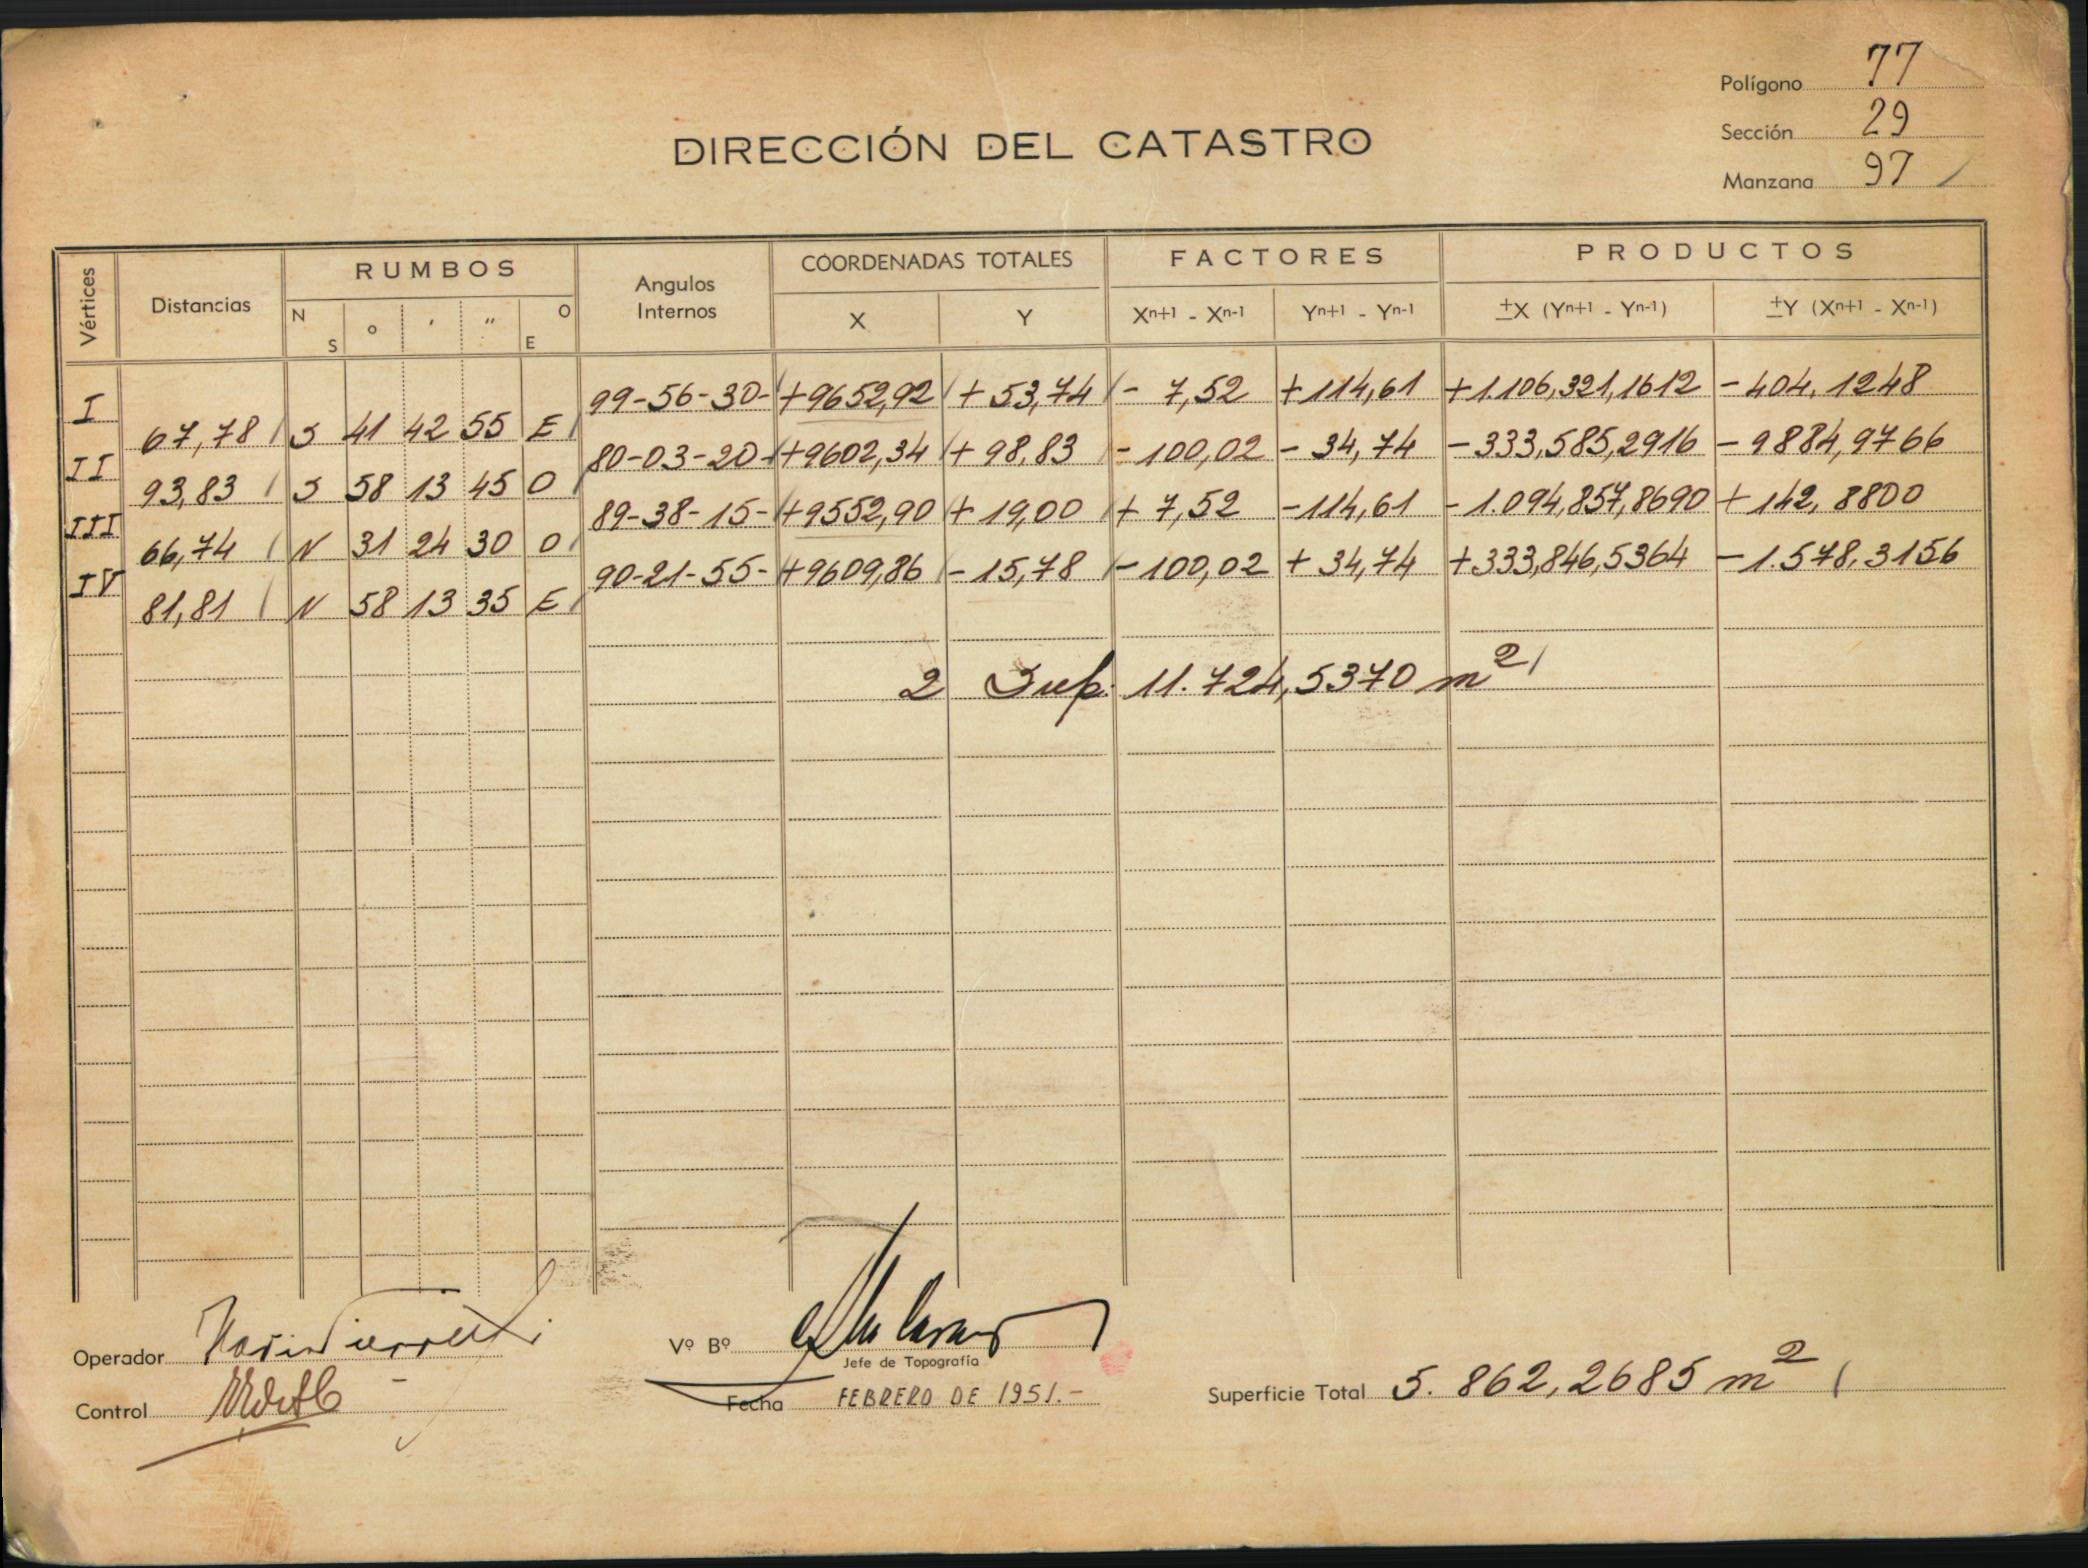 Polígono 77
Sección 29
Manzana 97
DIRECCIÓN DEL CATASTRO
Vértices Distancias RUMBOS Angulos Internos COORDENADAS TOTALES FACTORES PRODUCTOS
N S ° ' '' O E X Y Xn+1 - Xn-1 Yn+1 - Yn-1 ±X (Yn+1 - Yn-1) ±Y (Xn+1 - Xn-1)
I 99-56-30- +9652,92 + 53,74 - 7,52 +114,61 +1.106,321,1612 - 404,1248
67,78 S 41 42 55 E
II 80-03-20- +9602,34 + 98,83 - 100,02 - 34,74 - 333,585,2916 - 9884,9766
93,83 S 58 13 45 O
III 89-38-15- +9552,90 + 19,00 + 7,52 -114,61 - 1.094,857,8690 + 142,8800
66,74 N 31 24 30 O
IV 90-21-55- +9609,86 - 15,78 - 100,02 + 34,74 +333,846,5364 - 1.578,3156
81,81 N 58 13 35 E
2 Sup. 11.724,5370 m²
Operador
Vº Bº
Jefe de Topografía
Control
Fecha FEBRERO DE 1951.-
Superficie Total 5.862,2685 m²